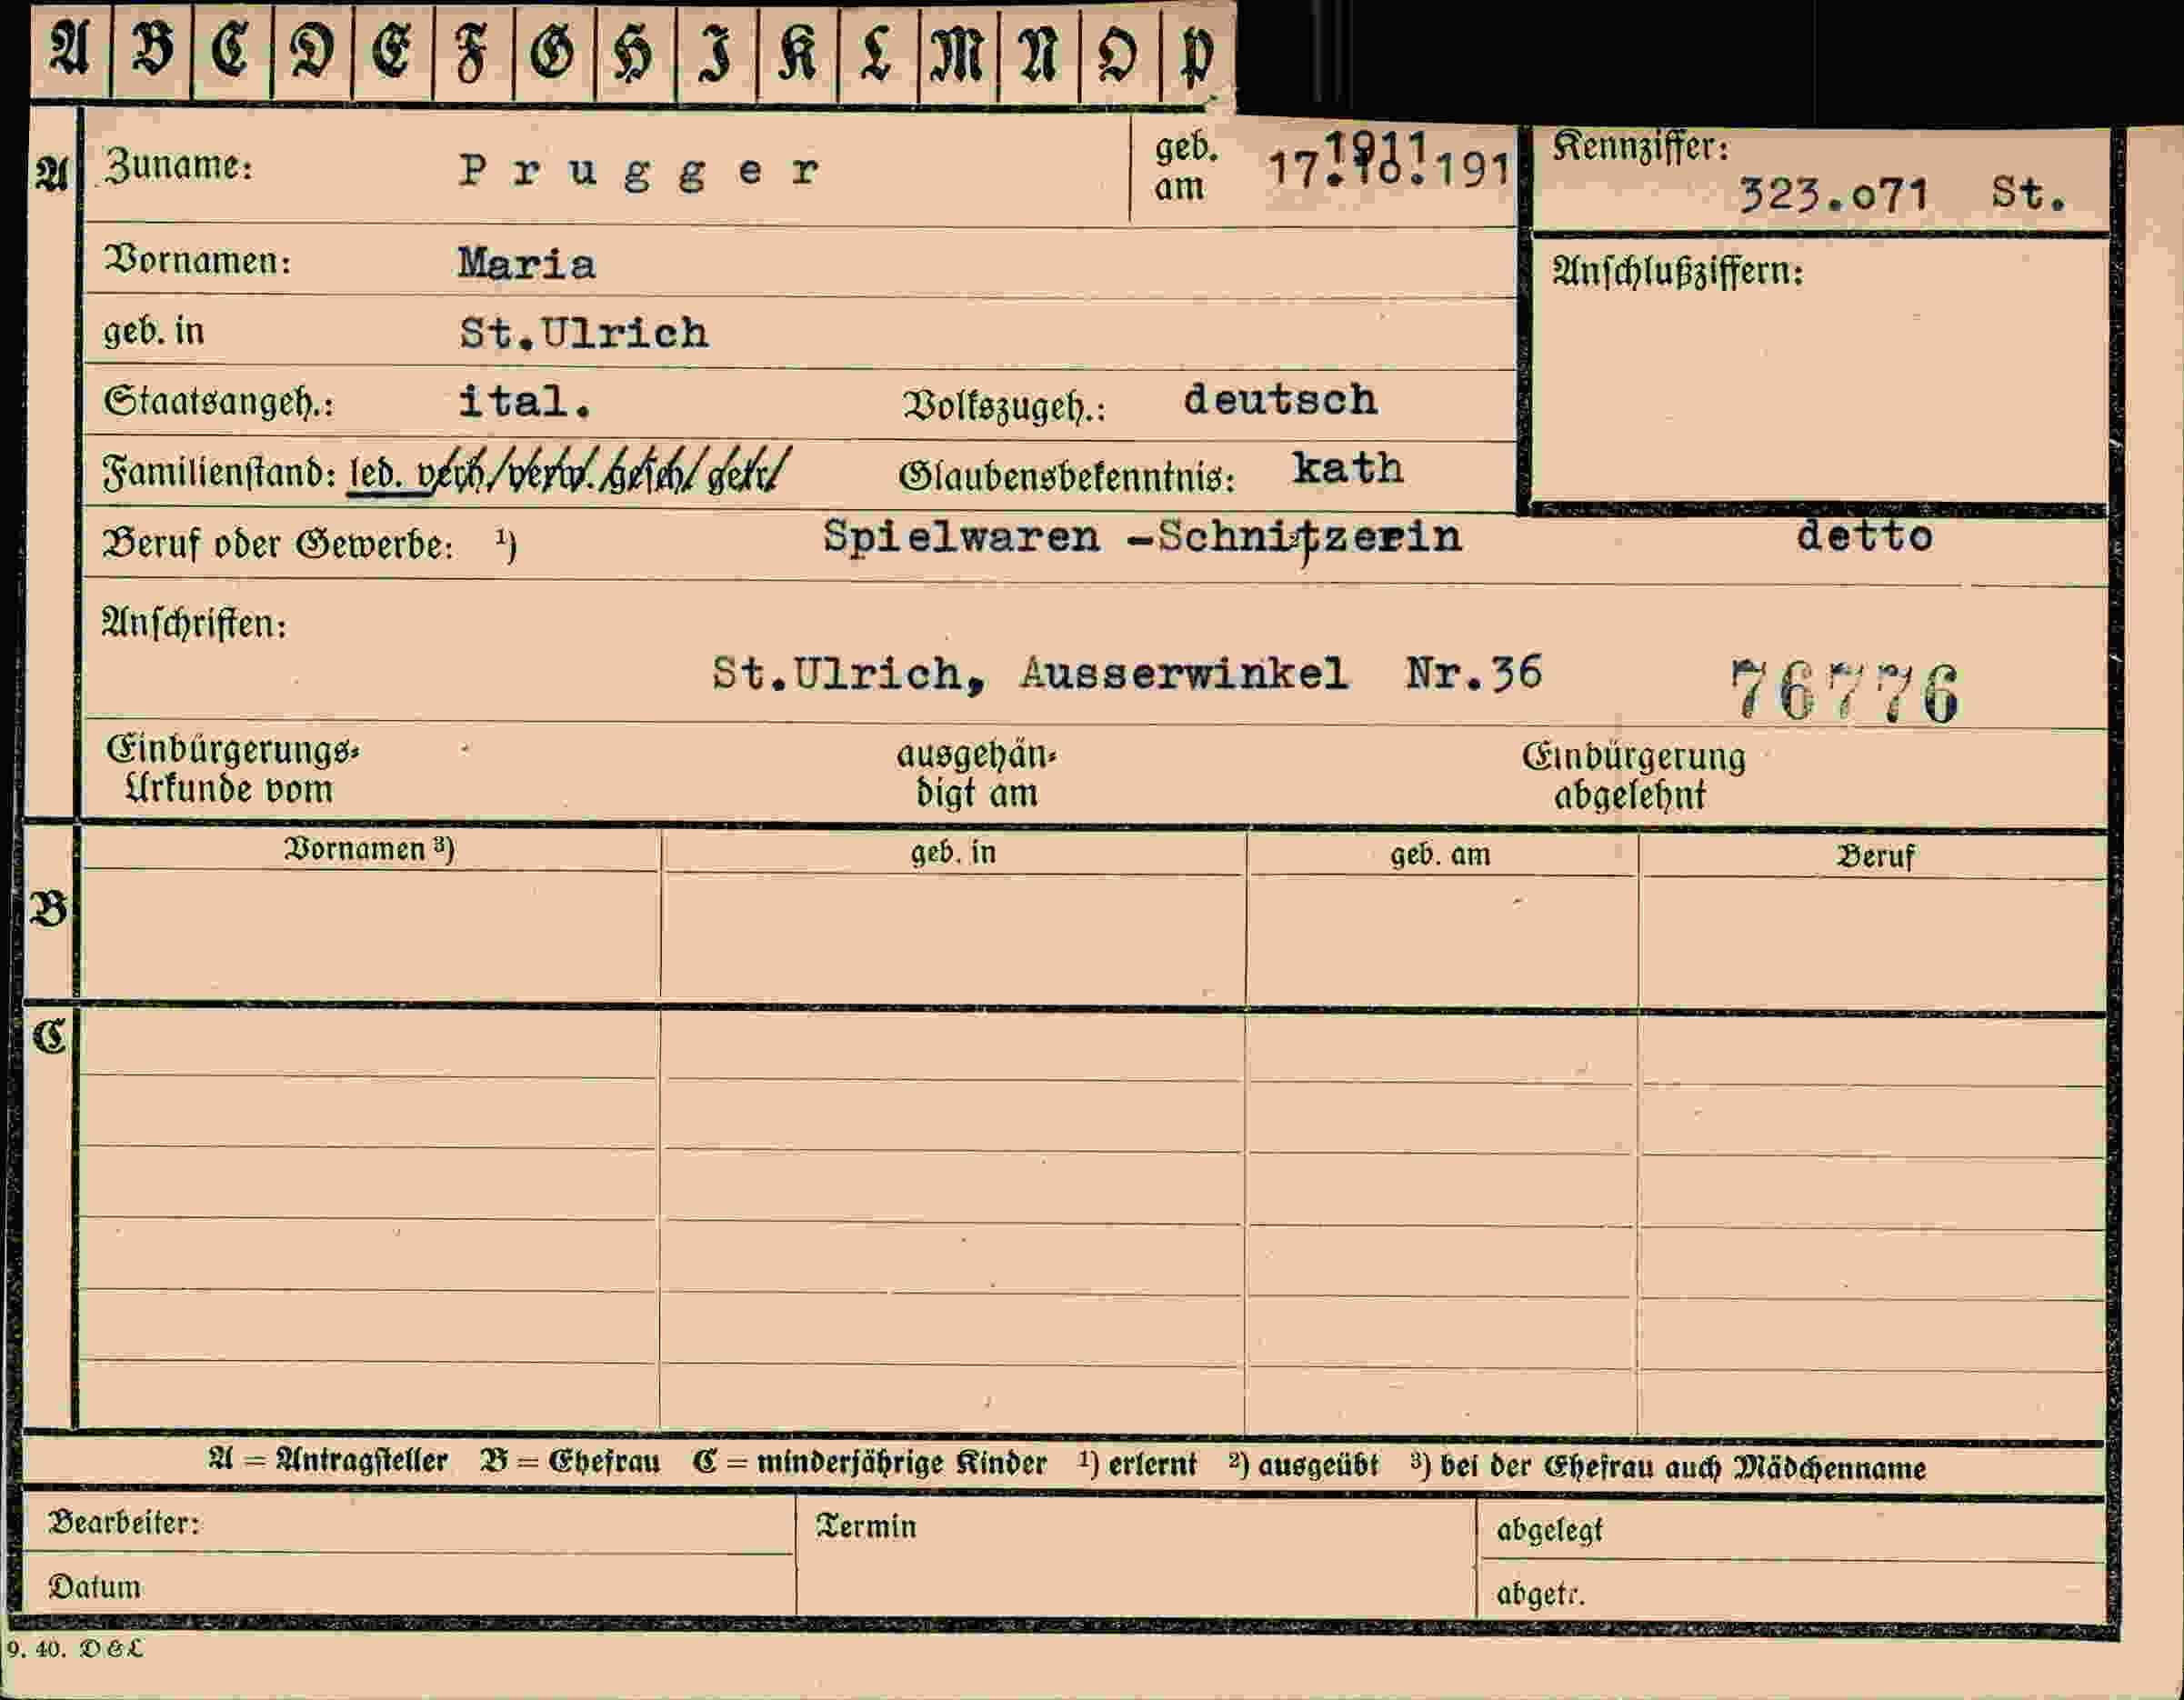 A B C D E F G H I K L M N O P
A Zuname: Prugger geb. am 17.10.191 1911 Kennziffer: 323.o71 St.
Vornamen: Maria Anschlußziffern:
geb. in St.Ulrich
Staatsangeh.: ital. Volkszugeh.: deutsch
Familienstand: led. verh/verw./gesch/getr/ Glaubensbekenntnis: kath
Beruf oder Gewerbe: ¹) Spielwaren -Schnitzerin detto
Anschriften:
St.Ulrich, Ausserwinkel Nr.36 76776
Einbürgerungs- ausgehän- Einbürgerung
Urkunde vom digt am abgelehnt
Vornamen ³) geb. in geb. am Beruf
B
C
A = Antragsteller B = Ehefrau C = minderjährige Kinder ¹) erlernt ²) ausgeübt ³) bei der Ehefrau auch Mädchenname
Bearbeiter: Termin abgelegt
Datum abgetr.
9. 40. D & L